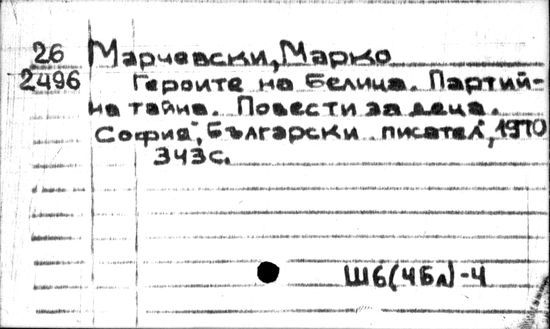 26 Марчевски, Марко
2496 Героите на Белица. Партий-
на тайна. Повести за деца.
София, "Български писател", 1970
343 с.
Ш6(4Бл)-4